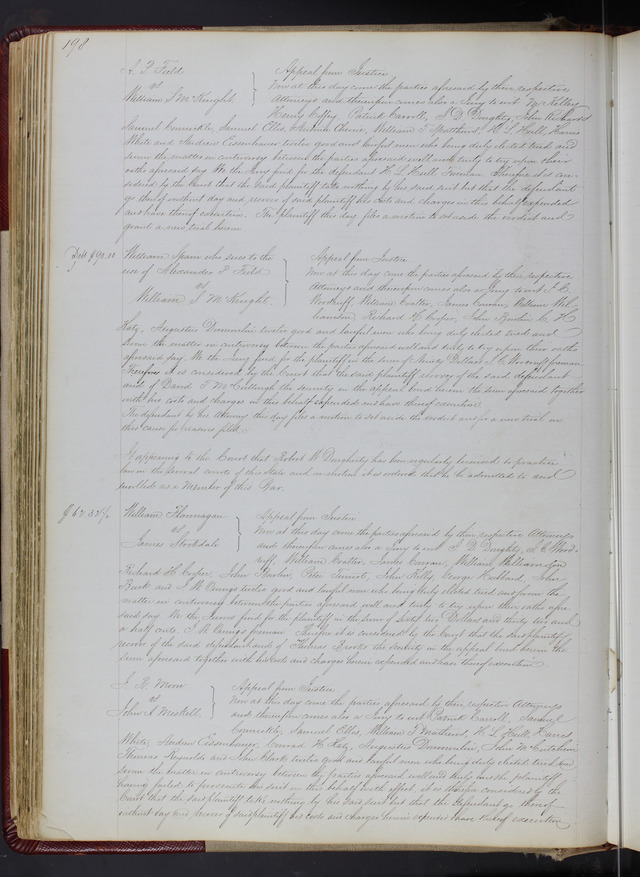 198
A. P. Field
vs
William S McKnight
Appeal from Justice
Now at this day came the parties aforesaid by their respective
Attorneys and thereupon comes also a Jury to wit
Henry Coffey, Patrick Carroll, S D Doughty, John Richards
Samuel Connickle, Samuel Ellis, William T Matthews, H L Hull, Harris
White and Andrew Eisenhauer twelve good and lawful men who being duly elected tried and
sworn the matter in controversy between the parties aforesaid well and truly to try upon their
oaths aforesaid say We the Jury find for the defendant H. L. Hull Foreman. Therefore it is con-
sidered by the Court that the said plaintiff take nothing by his said suit but that the defendant
go thereof without day and recover of said plaintiff his costs and charges in this behalf expended
and have thereof execution. The plaintiff this day files a motion to set aside the verdict and
grant a new trial herein
Debt $90.00
William Spain who sues to the
use of Alexander P Field
vs
William S McKnight
Appeal from Justice
Now at this day come the parties aforesaid by their respective
Attorneys and thereupon comes also a Jury to wit
Woodruff William Coulter, James Conran, William Wil-
liamson Richard H Cooper, John C. H
Katz, Augustus twelve good and lawful men who being duly elected tried and
sworn the matter in controversy between the parties aforesaid well and truly to try upon their oaths
aforesaid say, We the Jury find for the plaintiff in the sum of Ninety Dollars, foreman
Therefore it is considered by the Court that the said plaintiff recover of the said defendant
and of David T McCullough the security in the appeal bond herein the sum aforesaid together
with his costs and charges in this behalf expended and have thereof execution.
The defendant by his Attorney this day files a motion to set aside the verdict and for a new trial in
this cause for reasons filed.
It appearing to the Court that Robert W Dougherty has been regularly licensed to practice
law in the several courts of this State and on motion it is ordered that he be admitted to and
enrolled as a Member of this Bar.
$62 32 1/2
William Flannagan
vs
James Stockdale
Appeal from Justice
Now at this day come the parties aforesaid by their respective Attorneys
and thereupon comes also a Jury to wit S D Doughty, Wood-
ruff, William Coulter, James Conran, William Williamson
Richard H Cooper, John Peter John Kelly George Hubbard, John
and twelve good and lawful men who being duly elected tried and sworn the
matter in controversy between the parties aforesaid well and truly to try upon their oaths afore
said say We the Jurors find for the plaintiff in the sum of Sixty two Dollars and thirty two and
a half cents. foreman Therefore it is considered by the Court that the said plaintiff
recover of the said defendant and of Thomas the security in the appeal bond herein the
sum aforesaid together with his costs and charges herein expended and have thereof execution
vs
John S Meskell
Appeal from Justice
Now at this day come the parties aforesaid by their respective Attorneys
and thereupon comes also a Jury to wit Patrick Carroll, Samuel
Connickle, Samuel Ellis, William T Matthews, H L Hull, Harris
White, Andrew Eisenhauer, Conrad H Katz, Augustus John McCutcheon
Thomas Reynolds and John Clark twelve good and lawful men who being duly elected tried and
sworn the matter in controversy between the parties aforesaid well and truly and the plaintiff
having failed to prosecute his suit in this behalf with effect. it is therefore considered by the
Court that the said plaintiff take nothing by his said suit but that the defendant go thereof
without day and recover of said plaintiff his costs and charges herein expended & have thereof execution